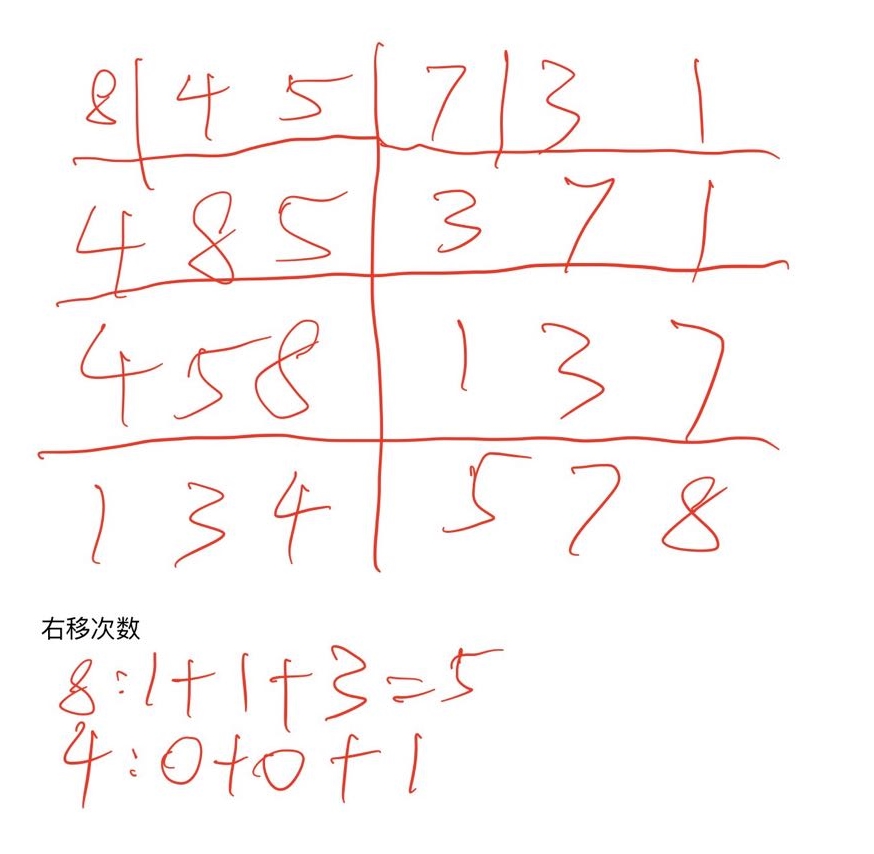 8 4 5 7 3 1
4 8 5 3 7 1
4 5 8 1 3 7
1 3 4 5 7 8
右移次数
8:1+1+3=5
4:0+0+1